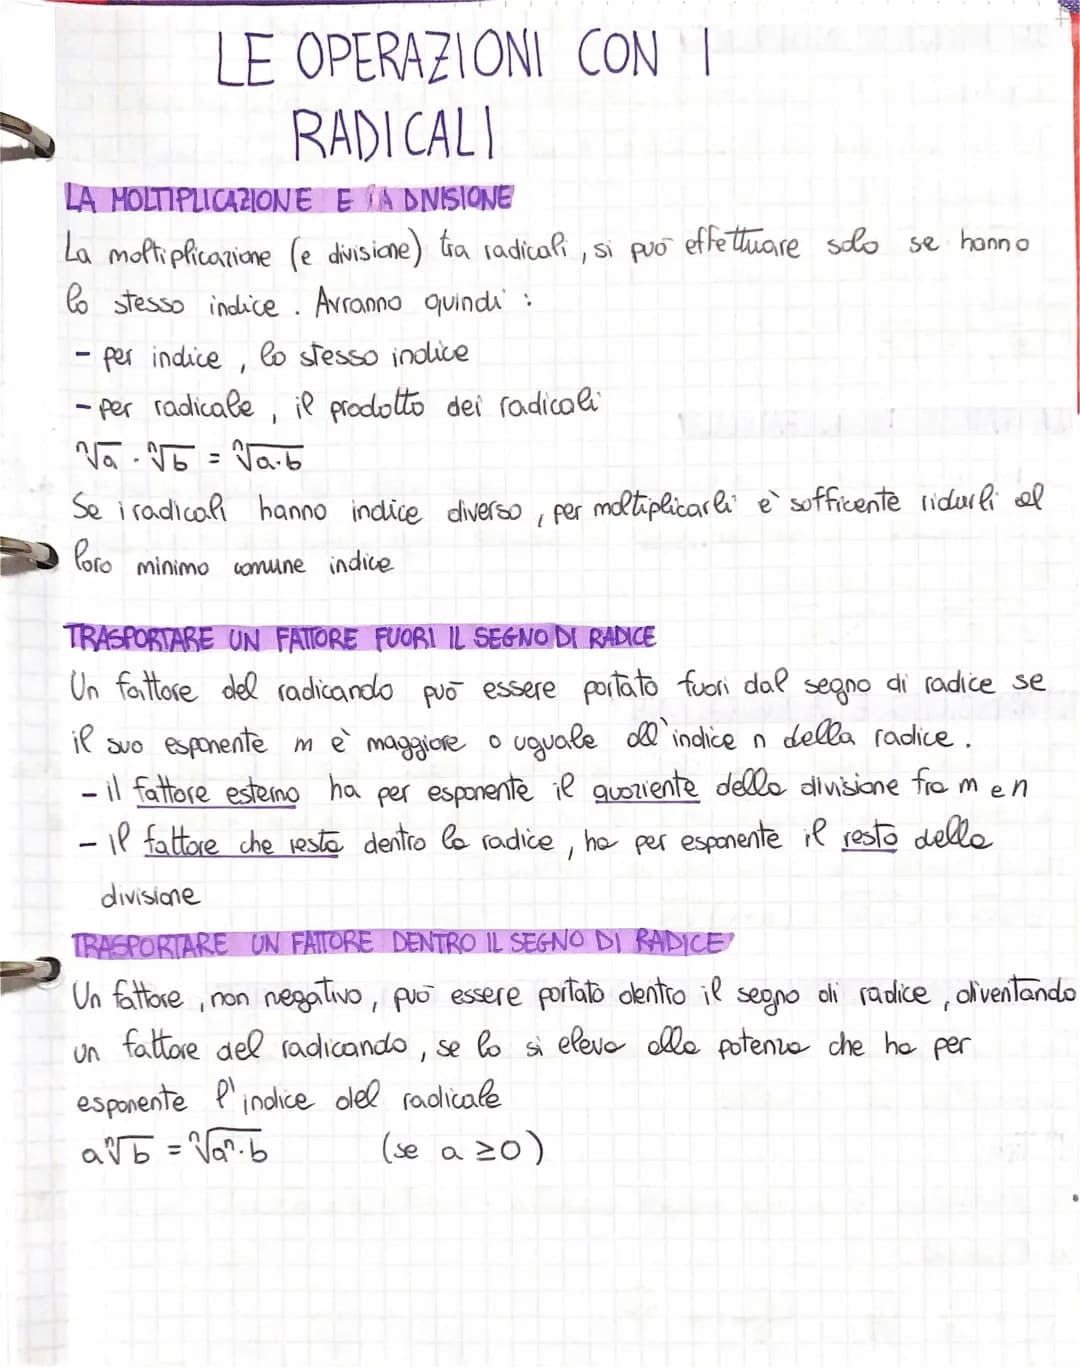 LE OPERAZIONI CON I
RADICALI
LA MOLTIPLICAZIONE E LA DIVISIONE
La moltiplicazione (e divisione) tra radicali, si può effettuare solo se hanno
lo stesso indice. Avranno quindi:
- per indice, lo stesso indice
- per radicale, il prodotto dei radicali
ⁿ√a · ⁿ√b = ⁿ√a·b
Se i radicali hanno indice diverso, per moltiplicarli è sufficente ridurli al
loro minimo comune indice
TRASPORTARE UN FATTORE FUORI IL SEGNO DI RADICE
Un fattore del radicando può essere portato fuori dal segno di radice se
il suo esponente m è maggiore o uguale all'indice n della radice.
- il fattore esterno ha per esponente il quoziente della divisione fra m e n
- il fattore che resta dentro la radice, ha per esponente il resto della
divisione
TRASPORTARE UN FATTORE DENTRO IL SEGNO DI RADICE
Un fattore, non negativo, può essere portato dentro il segno di radice, diventando
un fattore del radicando, se lo si eleva alla potenza che ha per
esponente l'indice del radicale
aⁿ√b = ⁿ√aⁿ·b (se a ≥0)